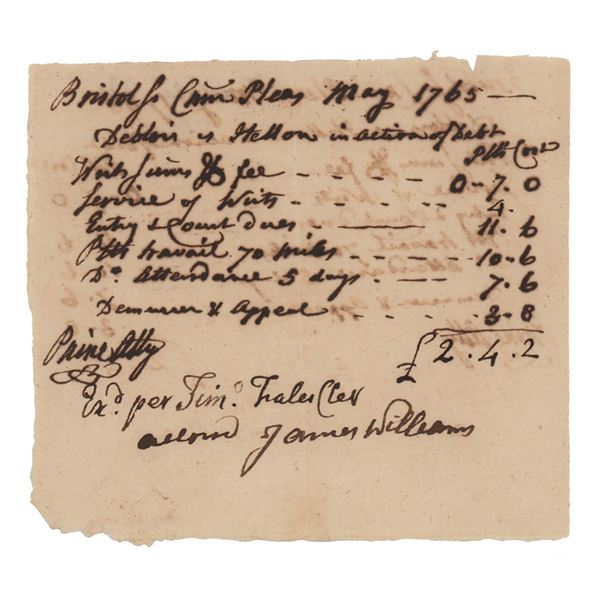 Bristol ss Com Pleas May 1765 —
Deblois vs Stetson in action of Debt
Plts Cost
Writs sums & fee - - - - - 0 - 7 . 0
Service of Writs - - - - - 4 .
Entry & Court dues - — 11 . 6
Plts travail 70 miles - - - - 10 . 6
Do. Attendance 5 days - — 7 . 6
Demurrer & Appeal - - - - 3 . 8
Paine Atty £ 2 . 4 . 2
Exd. per Timo. Fales Cler
James Williams